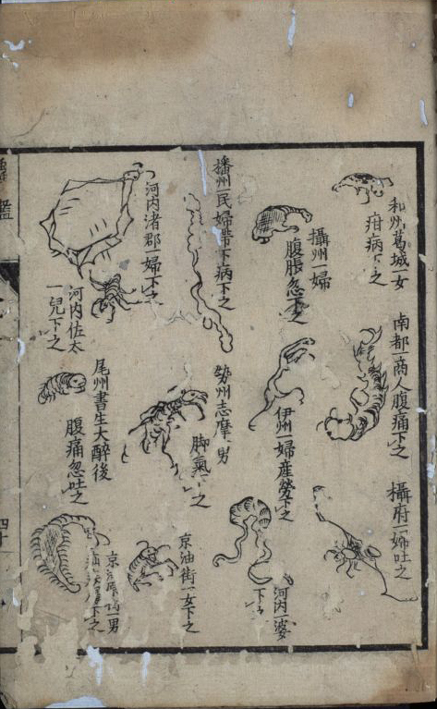 和州葛城一女
疳病下之
南都一商人腹痛下之
攝府一婦吐之
攝州一婦
腹脹忽下之
伊州一婦産勞下之
河内一婆
下之
播州一民婦帯下病下之
勢州志摩一男
脚氣下之
京油街一女下之
河内渚郡一婦下之
河内佐太
一兒下之
尾州書生大醉後
腹痛忽吐之
一男
下之
鑑
四十